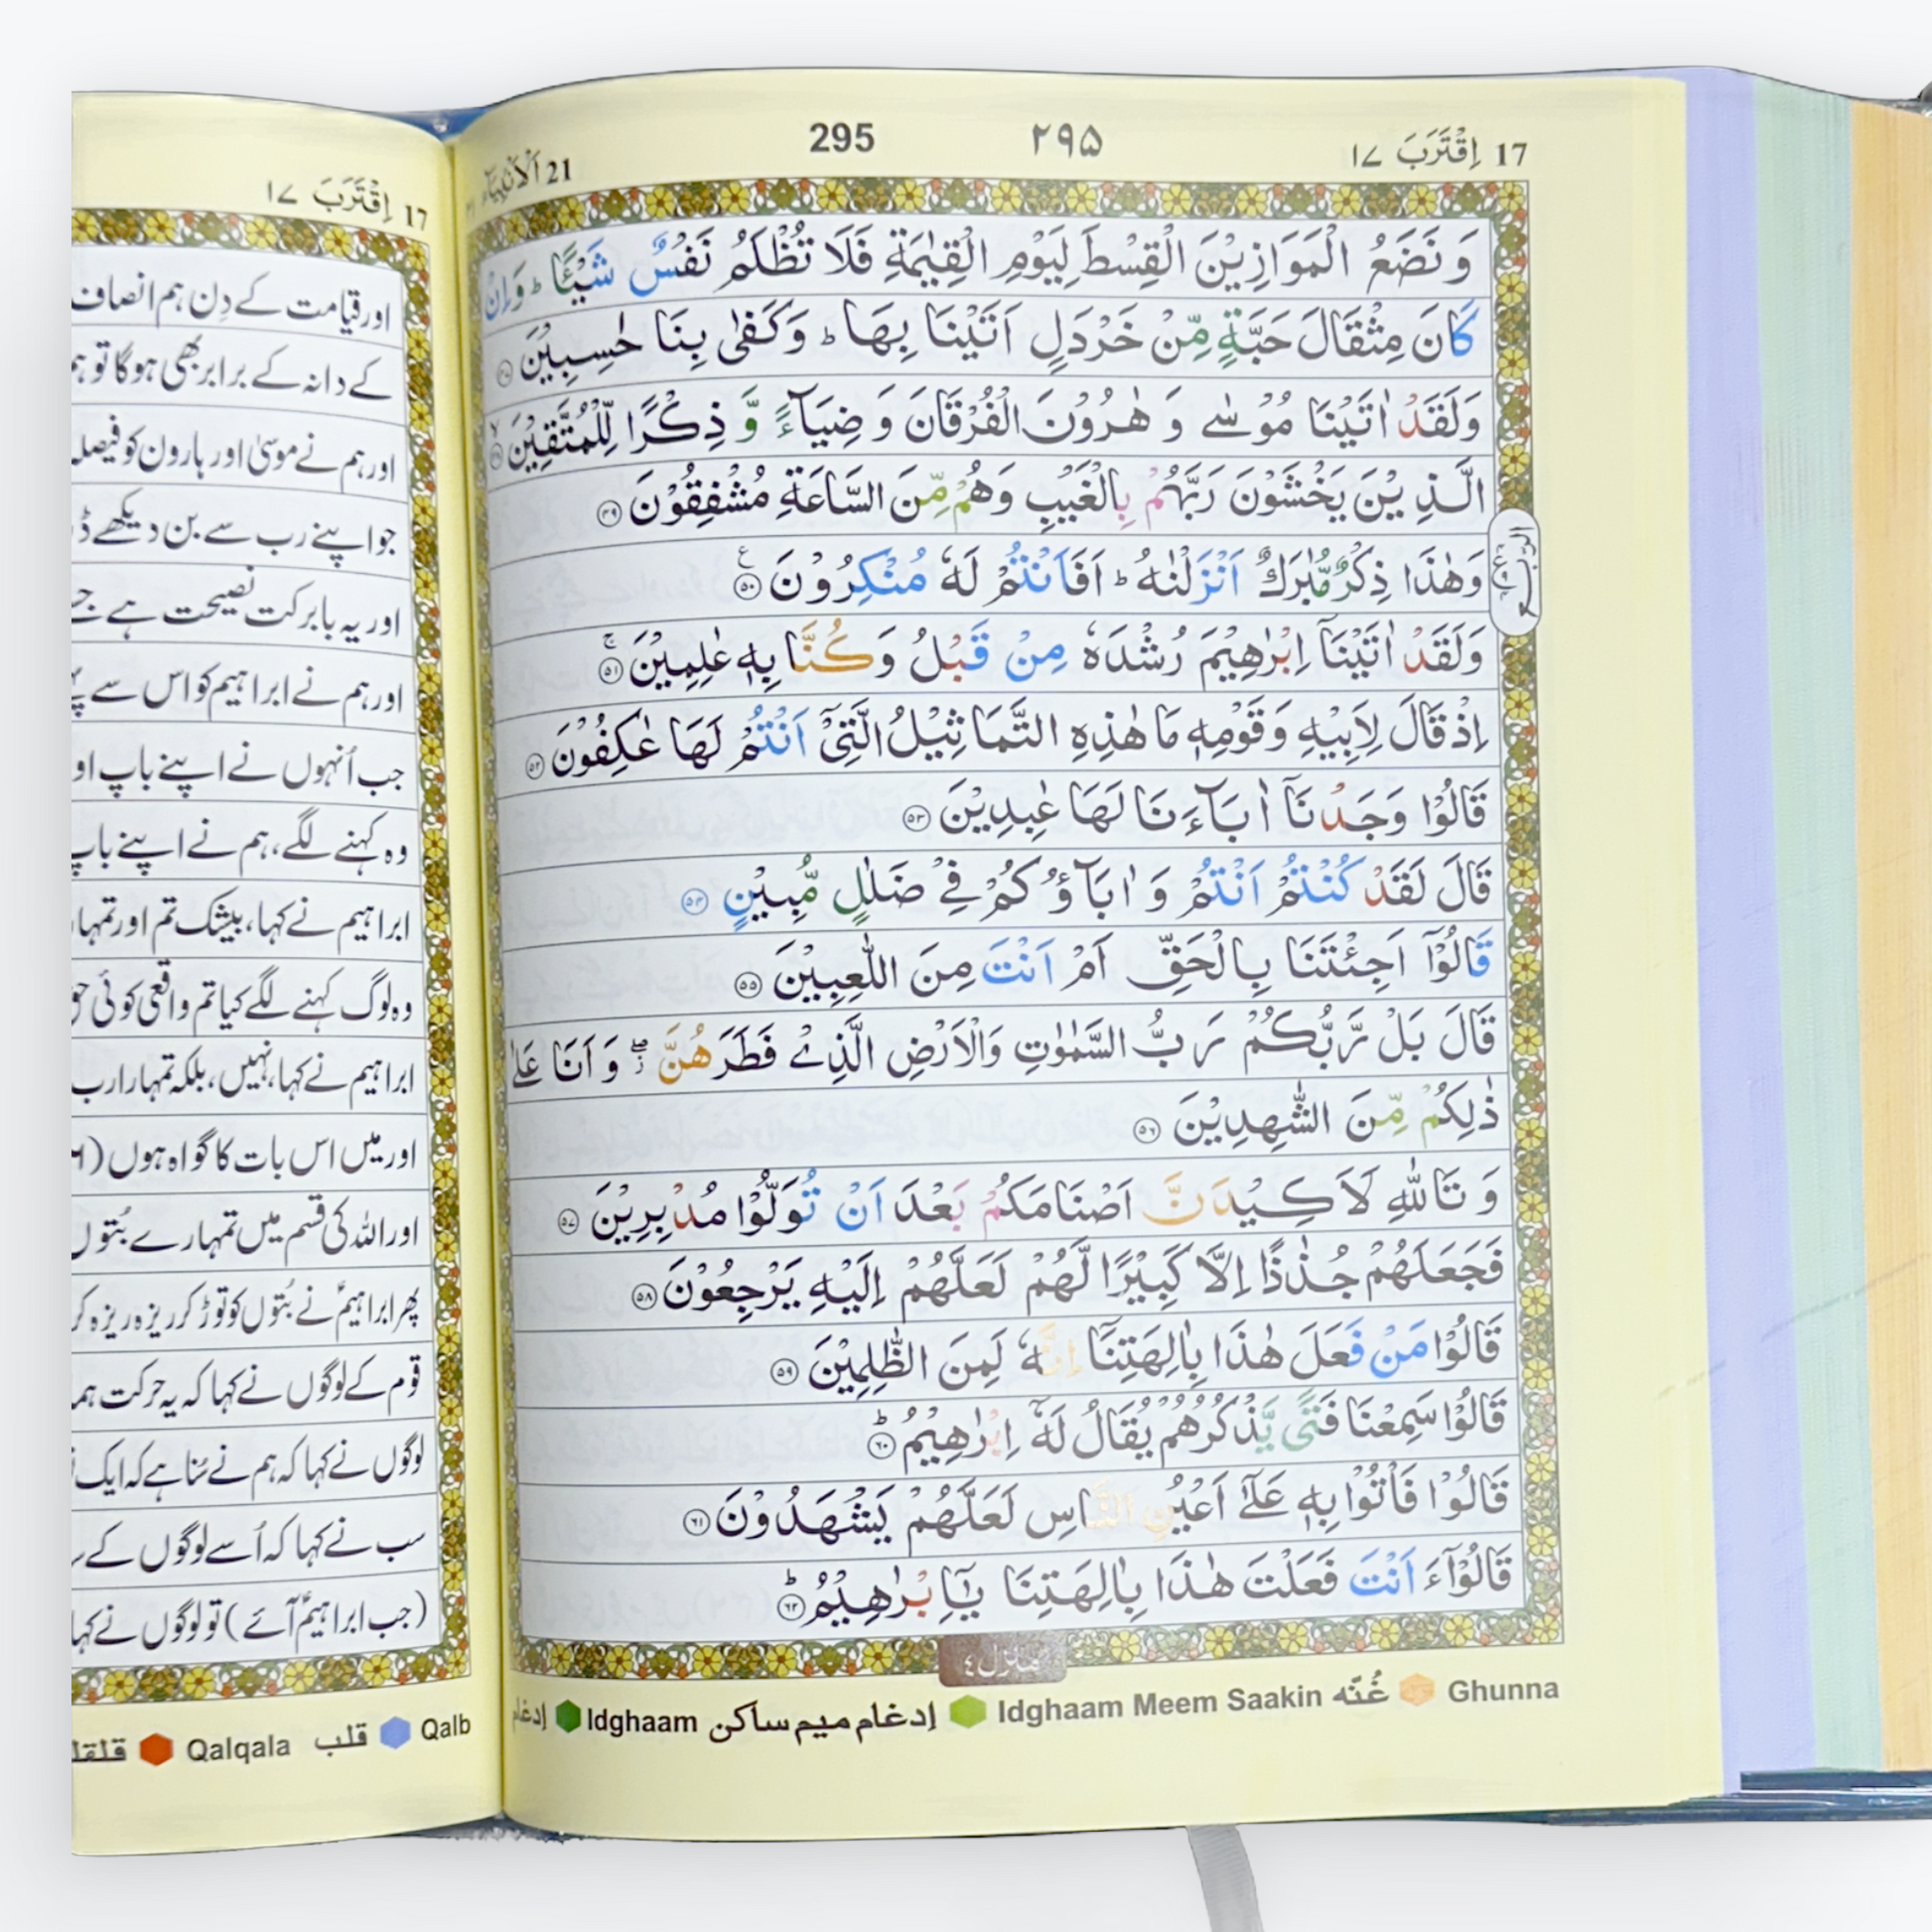 17 اِقْتَرَبَ ١٧
295 ٢٩٥
21 اَلْاَنْۢبِيَآء
وَ نَضَعُ الْمَوَازِيْنَ الْقِسْطَ لِيَوْمِ الْقِيٰمَةِ فَلَا تُظْلَمُ نَفْسٌ شَيْـًٔا ؕ وَاِنْ
كَانَ مِثْقَالَ حَبَّةٍ مِّنْ خَرْدَلٍ اَتَيْنَا بِهَا ؕ وَكَفٰى بِنَا حٰسِبِيْنَ
وَلَقَدْ اٰتَيْنَا مُوْسٰى وَ هٰرُوْنَ الْفُرْقَانَ وَ ضِيَآءً وَّ ذِكْرًا لِّلْمُتَّقِيْنَ
الَّذِيْنَ يَخْشَوْنَ رَبَّهُمْ بِالْغَيْبِ وَهُمْ مِّنَ السَّاعَةِ مُشْفِقُوْنَ ٤٩
وَهٰذَا ذِكْرٌ مُّبٰرَكٌ اَنْزَلْنٰهُ ؕ اَفَاَنْتُمْ لَهٗ مُنْكِرُوْنَ ٥٠ ع
وَلَقَدْ اٰتَيْنَاۤ اِبْرٰهِيْمَ رُشْدَهٗ مِنْ قَبْلُ وَ كُنَّا بِهٖ عٰلِمِيْنَ ٥١ ۚ
اِذْ قَالَ لِاَبِيْهِ وَ قَوْمِهٖ مَا هٰذِهِ التَّمَاثِيْلُ الَّتِيْۤ اَنْتُمْ لَهَا عٰكِفُوْنَ ٥٢
قَالُوْا وَجَدْنَاۤ اٰبَآءَنَا لَهَا عٰبِدِيْنَ ٥٣
قَالَ لَقَدْ كُنْتُمْ اَنْتُمْ وَ اٰبَآؤُكُمْ فِيْ ضَلٰلٍ مُّبِيْنٍ ٥٤
قَالُوْۤا اَجِئْتَنَا بِالْحَقِّ اَمْ اَنْتَ مِنَ اللّٰعِبِيْنَ ٥٥
قَالَ بَلْ رَّبُّكُمْ رَبُّ السَّمٰوٰتِ وَالْاَرْضِ الَّذِيْ فَطَرَهُنَّ ۖز وَ اَنَا عَلٰى
ذٰلِكُمْ مِّنَ الشّٰهِدِيْنَ ٥٦
وَ تَاللّٰهِ لَاَكِيْدَنَّ اَصْنَامَكُمْ بَعْدَ اَنْ تُوَلُّوْا مُدْبِرِيْنَ ٥٧
فَجَعَلَهُمْ جُذٰذًا اِلَّا كَبِيْرًا لَّهُمْ لَعَلَّهُمْ اِلَيْهِ يَرْجِعُوْنَ ٥٨
قَالُوْا مَنْ فَعَلَ هٰذَا بِاٰلِهَتِنَاۤ اِنَّهٗ لَمِنَ الظّٰلِمِيْنَ ٥٩
قَالُوْا سَمِعْنَا فَتًى يَّذْكُرُهُمْ يُقَالُ لَهٗۤ اِبْرٰهِيْمُ ؕ ٦٠
قَالُوْا فَاْتُوْا بِهٖ عَلٰۤى اَعْيُنِ النَّاسِ لَعَلَّهُمْ يَشْهَدُوْنَ ٦١
قَالُوْۤا ءَاَنْتَ فَعَلْتَ هٰذَا بِاٰلِهَتِنَا يٰۤاِبْرٰهِيْمُ ؕ ٦٢
منزل ٤
Ghunna غُنّه Idghaam Meem Saakin إدغام ميم ساكن Idghaam إدغام
17 اِقْتَرَبَ ١٧
اور قیامت کے دِن ہم انصاف
کے دانہ کے برابر بھی ہوگا تو ہم
اور ہم نے موسیٰ اور ہارون کو فیصلہ
جو اپنے رب سے بن دیکھے
اور یہ بابرکت نصیحت ہے جسے
اور ہم نے ابراہیم کو اس سے
جب اُنہوں نے اپنے باپ او
وہ کہنے لگے، ہم نے اپنے باپ
ابراہیم نے کہا، بیشک تم اور تمہا
وہ لوگ کہنے لگے کیا تم واقعی کوئی
ابراہیم نے کہا، نہیں، بلکہ تمہارا رب
اور میں اس بات کا گواہ ہوں
اور اللہ کی قسم میں تمہارے بُتوں
پھر ابراہیمؑ نے بُتوں کو توڑ کر ریزہ ریزہ کر
قوم کے لوگوں نے کہا کہ یہ حرکت ہما
لوگوں نے کہا کہ ہم نے سُنا ہے کہ ایک
سب نے کہا کہ اُسے لوگوں کے
(جب ابراہیمؑ آئے) تو لوگوں نے کہا
Qalb قلب Qalqala قلقلـ